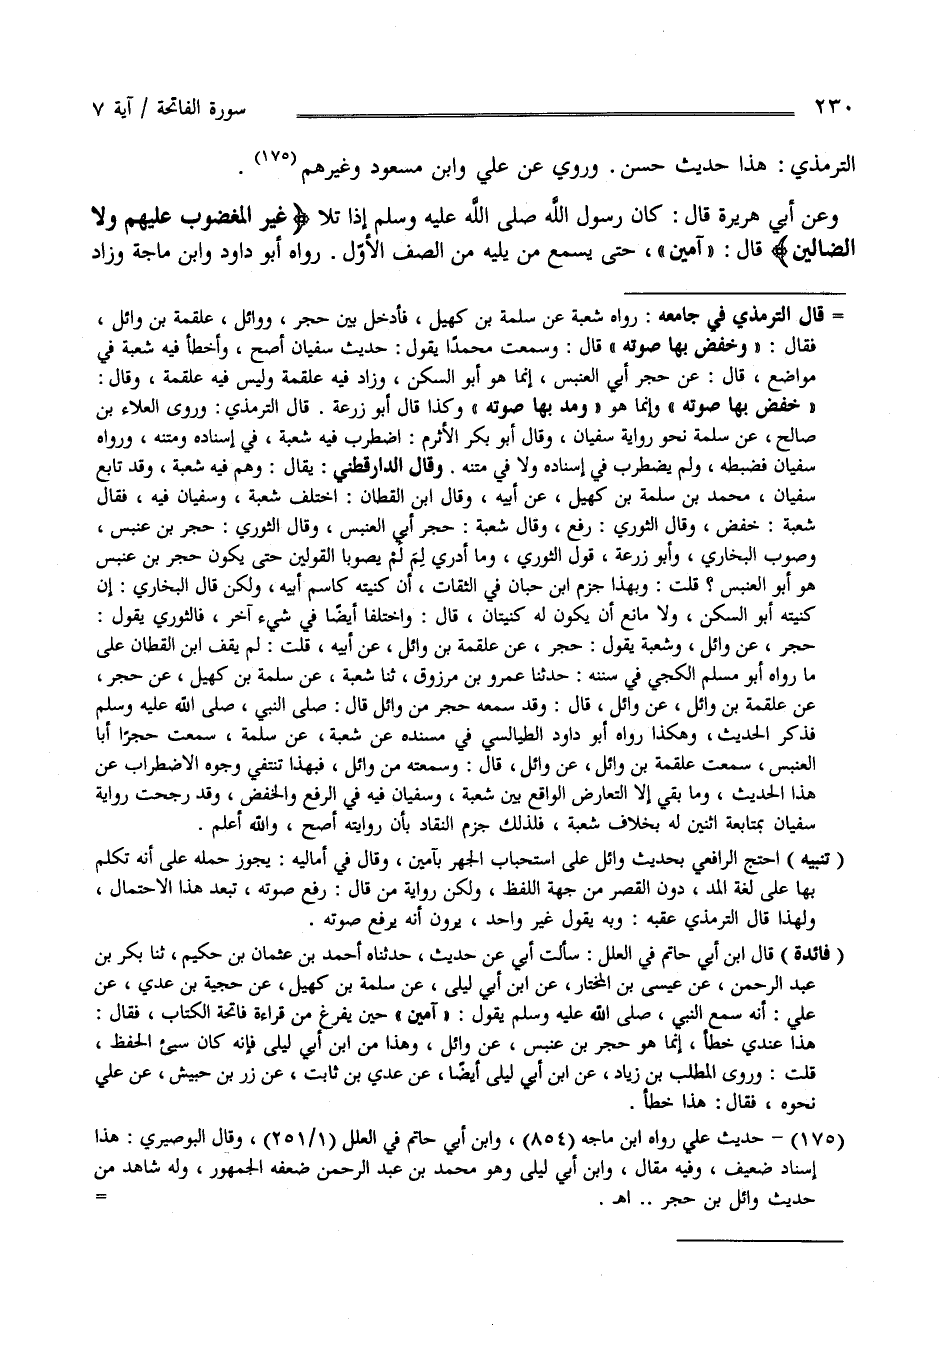 ٢٣٠ سورة الفاتحة / آية ٧
الترمذي : هذا حديث حسن . وروي عن علي وابن مسعود وغيرهم (١٧٥) .
وعن أبي هريرة قال : كان رسول اللَّه صلى اللَّه عليه وسلم إذا تلا ﴿ غير المغضوب عليهم ولا
الضالين ﴾ قال : « آمين » ، حتى يسمع من يليه من الصف الأوّل . رواه أبو داود وابن ماجة وزاد
= قال الترمذي في جامعه : رواه شعبة عن سلمة بن كهيل ، فأدخل بين حجر ، ووائل ، علقمة بن وائل ،
فقال : « وخفض بها صوته » قال : وسمعت محمدًا يقول : حديث سفيان أصح ، وأخطأ فيه شعبة في
مواضع ، قال : عن حجر أبي العنبس ، إنما هو أبو السكن ، وزاد فيه علقمة وليس فيه علقمة ، وقال :
« خفض بها صوته » وإنما هو « ومد بها صوته » وكذا قال أبو زرعة . قال الترمذي : وروى العلاء بن
صالح ، عن سلمة نحو رواية سفيان ، وقال أبو بكر الأثرم : اضطرب فيه شعبة ، في إسناده ومتنه ، ورواه
سفيان فضبطه ، ولم يضطرب في إسناده ولا في متنه . وقال الدارقطني : يقال : وهم فيه شعبة ، وقد تابع
سفيان ، محمد بن سلمة بن كهيل ، عن أبيه ، وقال ابن القطان : اختلف شعبة ، وسفيان فيه ، فقال
شعبة : خفض ، وقال الثوري : رفع ، وقال شعبة : حجر أبي العنبس ، وقال الثوري : حجر بن عنبس ،
وصوب البخاري ، وأبو زرعة ، قول الثوري ، وما أدري لِمَ لَمْ يصوبا القولين حتى يكون حجر بن عنبس
هو أبو العنبس ؟ قلت : وبهذا جزم ابن حبان في الثقات ، أن كنيته كاسم أبيه ، ولكن قال البخاري : إن
كنيته أبو السكن ، ولا مانع أن يكون له كنيتان ، قال : واختلفا أيضًا في شيء آخر ، فالثوري يقول :
حجر ، عن وائل ، وشعبة يقول : حجر ، عن علقمة بن وائل ، عن أبيه ، قلت : لم يقف ابن القطان على
ما رواه أبو مسلم الكجي في سننه : حدثنا عمرو بن مرزوق ، ثنا شعبة ، عن سلمة بن كهيل ، عن حجر ،
عن علقمة بن وائل ، عن وائل ، قال : وقد سمعه حجر من وائل قال : صلى النبي ، صلى الله عليه وسلم
فذكر الحديث ، وهكذا رواه أبو داود الطيالسي في مسنده عن شعبة ، عن سلمة ، سمعت حجرًا أبا
العنبس ، سمعت علقمة بن وائل ، عن وائل ، قال : وسمعته من وائل ، فبهذا تنتفي وجوه الاضطراب عن
هذا الحديث ، وما بقي إلا التعارض الواقع بين شعبة ، وسفيان فيه في الرفع والخفض ، وقد رجحت رواية
سفيان بمتابعة اثنين له بخلاف شعبة ، فلذلك جزم النقاد بأن روايته أصح ، والله أعلم .
( تنبيه ) احتج الرافعي بحديث وائل على استحباب الجهر بآمين ، وقال في أماليه : يجوز حمله على أنه تكلم
بها على لغة المد ، دون القصر من جهة اللفظ ، ولكن رواية من قال : رفع صوته ، تبعد هذا الاحتمال ،
ولهذا قال الترمذي عقبه : وبه يقول غير واحد ، يرون أنه يرفع صوته .
( فائدة ) قال ابن أبي حاتم في العلل : سألت أبي عن حديث ، حدثناه أحمد بن عثمان بن حكيم ، ثنا بكر بن
عبد الرحمن ، عن عيسى بن المختار ، عن ابن أبي ليلى ، عن سلمة بن كهيل ، عن حجية بن عدي ، عن
علي : أنه سمع النبي ، صلى الله عليه وسلم يقول : « آمين » حين يفرغ من قراءة فاتحة الكتاب ، فقال :
هذا عندي خطأ ، إنما هو حجر بن عنبس ، عن وائل ، وهذا من ابن أبي ليلى فإنه كان سيئ الحفظ ،
قلت : وروى المطلب بن زياد ، عن ابن أبي ليلى أيضًا ، عن عدي بن ثابت ، عن زر بن حبيش ، عن علي
نحوه ، فقال : هذا خطأ .
(١٧٥) - حديث علي رواه ابن ماجه (٨٥٤) ، وابن أبي حاتم في العلل (٢٥١/١) ، وقال البوصيري : هذا
إسناد ضعيف ، وفيه مقال ، وابن أبي ليلى وهو محمد بن عبد الرحمن ضعفه الجمهور ، وله شاهد من
حديث وائل بن حجر .. اهـ . =